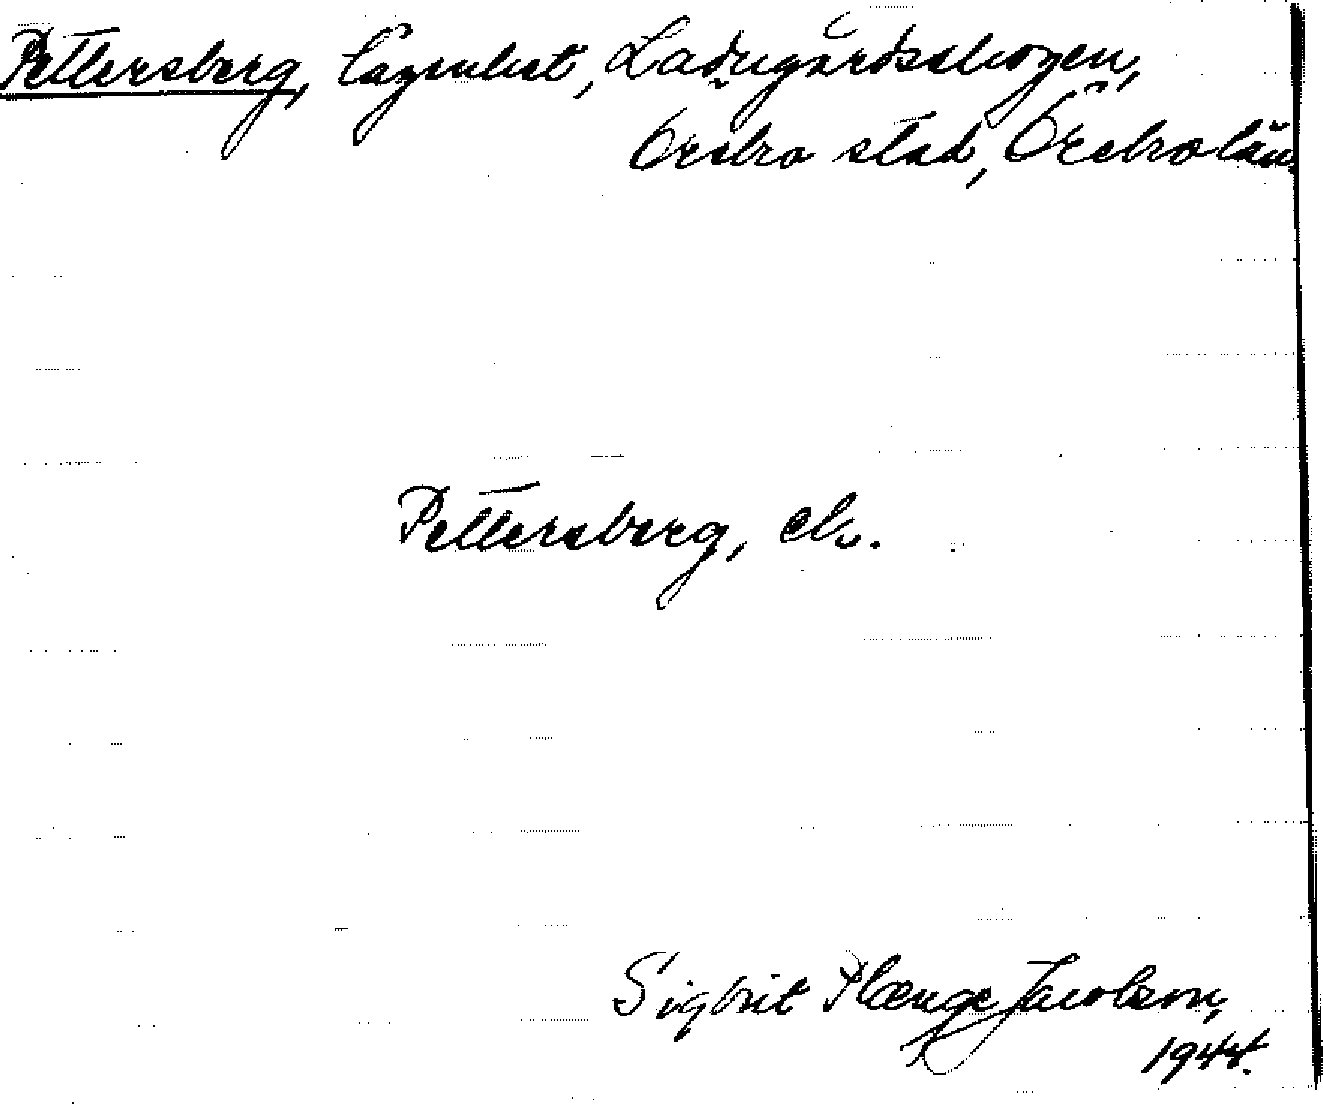 Pettersberg, lägenhet, Ladugårdsskogen,
Örebro stad, Örebro län
Pettersberg, ek.
Sigbrit Plænge Jacobson,
1944.